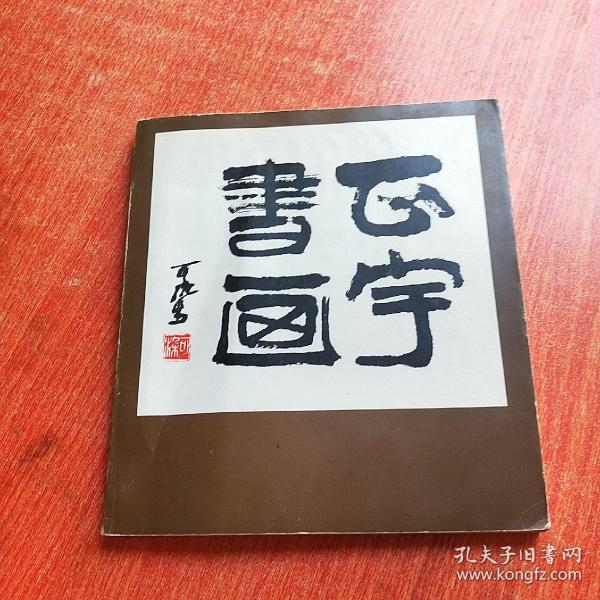 正宇
書画
可染書
可染
孔夫子旧书网
www.kongfz.com